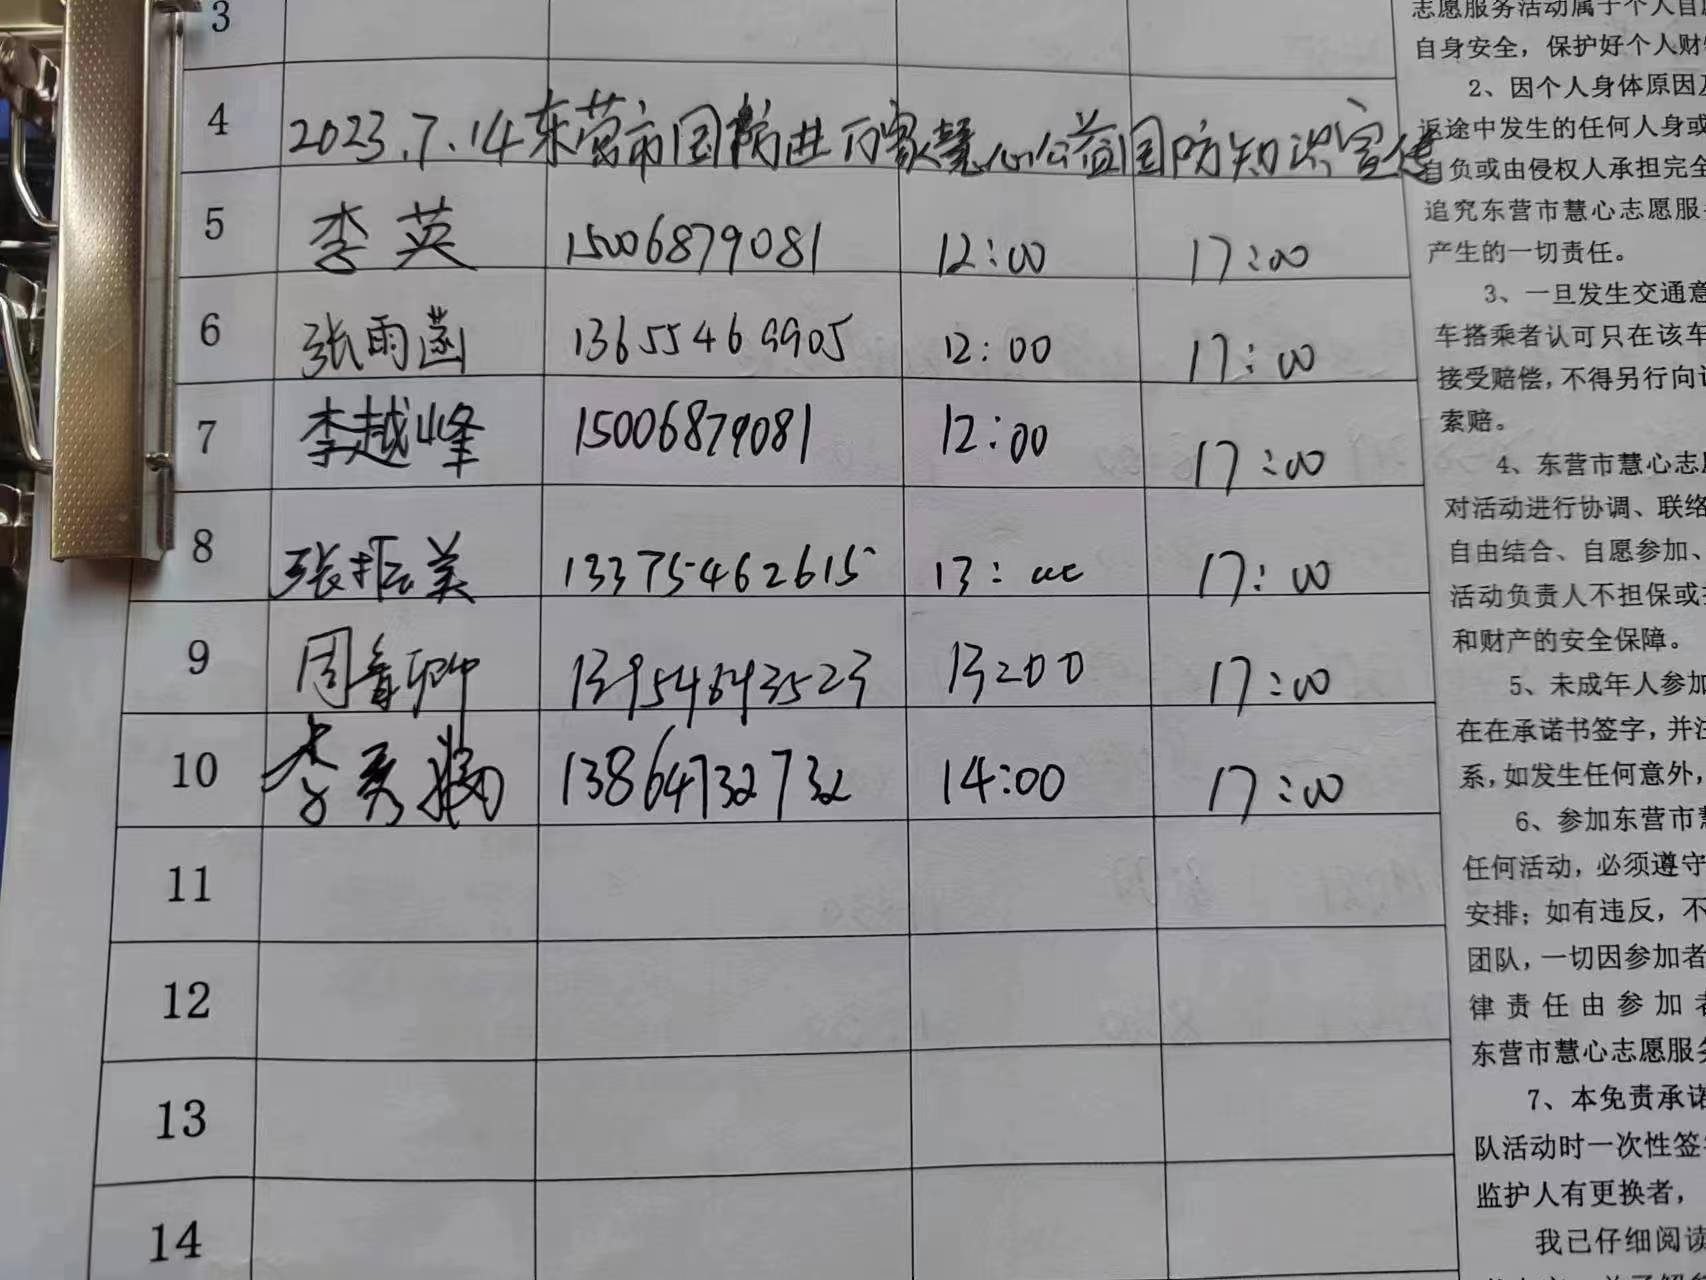 3
4 2023.7.14东营市国防进万家慧心公益国防知识宣传
5 李英 15006879081 12:00 17:00
6 张雨菡 13655469905 12:00 17:00
7 李越峰 15006879081 12:00 17:00
8 张振美 13375462615 13:00 17:00
9 周 13954643523 13:00 17:00
10 李秀娟 13864732732 14:00 17:00
11
12
13
14
志愿服务活动属于个人自愿
自身安全，保护好个人财
2、因个人身体原因及
返途中发生的任何人身或
自负或由侵权人承担完全
追究东营市慧心志愿服
产生的一切责任。
3、一旦发生交通意
车搭乘者认可只在该车
接受赔偿，不得另行向
索赔。
4、东营市慧心志
对活动进行协调、联络
自由结合、自愿参加、
活动负责人不担保或
和财产的安全保障。
5、未成年人参加
在在承诺书签字，并
系，如发生任何意外，
6、参加东营市慧
任何活动，必须遵守
安排；如有违反，不
团队，一切因参加者
律责任由参加者
东营市慧心志愿服务
7、本免责承诺
队活动时一次性签
监护人有更换者，
我已仔细阅读